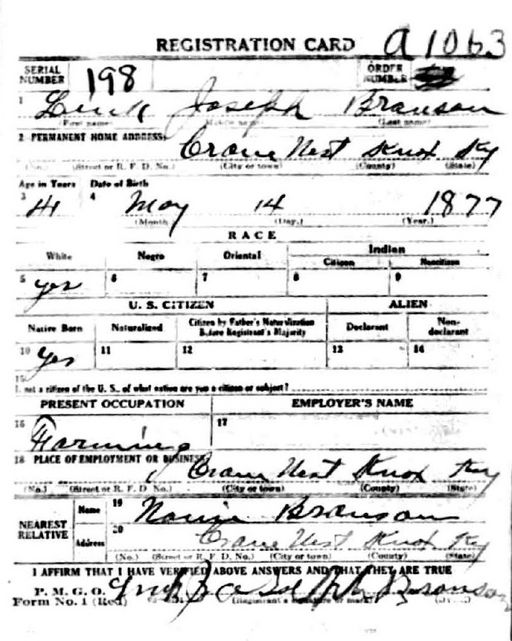 REGISTRATION CARD A1063
SERIAL NUMBER 198 ORDER NUMBER
1 Link Joseph Branson
(First name) (Middle name) (Last name)
2 PERMANENT HOME ADDRESS: Crane Nest Knox Ky
(No.) (Street or R. F. D. No.) (City or town) (County) (State)
Age in Years Date of Birth
3 41 4 May 14 1877
(Month.) (Day.) (Year.)
RACE
White Negro Oriental Indian
Citizen Noncitizen
5 yes 6 7 8 9
U. S. CITIZEN ALIEN
Native Born Naturalized Citizen by Father's Naturalization Before Registrant's Majority Declarant Non-declarant
10 yes 11 12 13 14
15
If not a citizen of the U. S., of what nation are you a citizen or subject?
PRESENT OCCUPATION EMPLOYER'S NAME
16 Farming 17
18 PLACE OF EMPLOYMENT OR BUSINESS: Crane Nest Knox Ky
(No.) (Street or R. F. D. No.) (City or town) (County) (State)
NEAREST RELATIVE Name 19 Branson
Address 20 Crane Nest Knox Ky
(No.) (Street or R. F. D. No.) (City or town) (County) (State)
I AFFIRM THAT I HAVE VERIFIED ABOVE ANSWERS AND THAT THEY ARE TRUE
P. M. G. O.
Form No. 1 (Red) Branson
(Registrant's signature or mark)